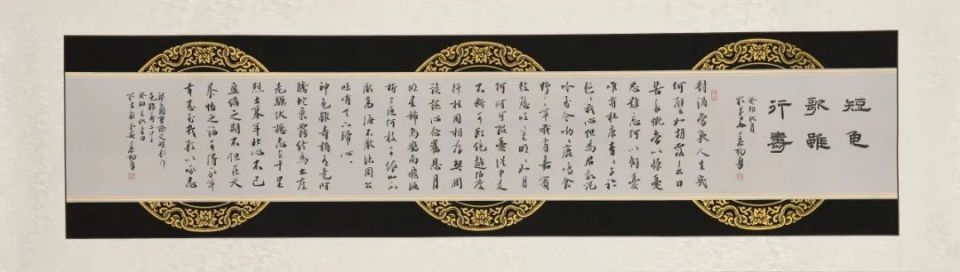 短歌行
龜雖壽
癸卯秋月
對酒當歌人生幾
何譬如朝露去日
苦多慨當以慷憂
思難忘何以解憂
唯有杜康青青子衿
悠悠我心但為君故沉
吟至今呦呦鹿鳴食
野之苹我有嘉賓
鼓瑟吹笙明明如月
何時可掇憂從中來
不斷可絕越陌度
阡枉用相存契闊
談讌心念舊恩月
明星稀烏鵲南飛繞
樹三匝何枝可依山不
厭高海不厭深周公
吐哺天下歸心
神龜雖壽猶有竟時
騰蛇乘霧終為土灰
老驥伏櫪志在千里
烈士暮年壯心不已
盈縮之期不但在天
養怡之福可得永年
幸甚至哉歌以詠志